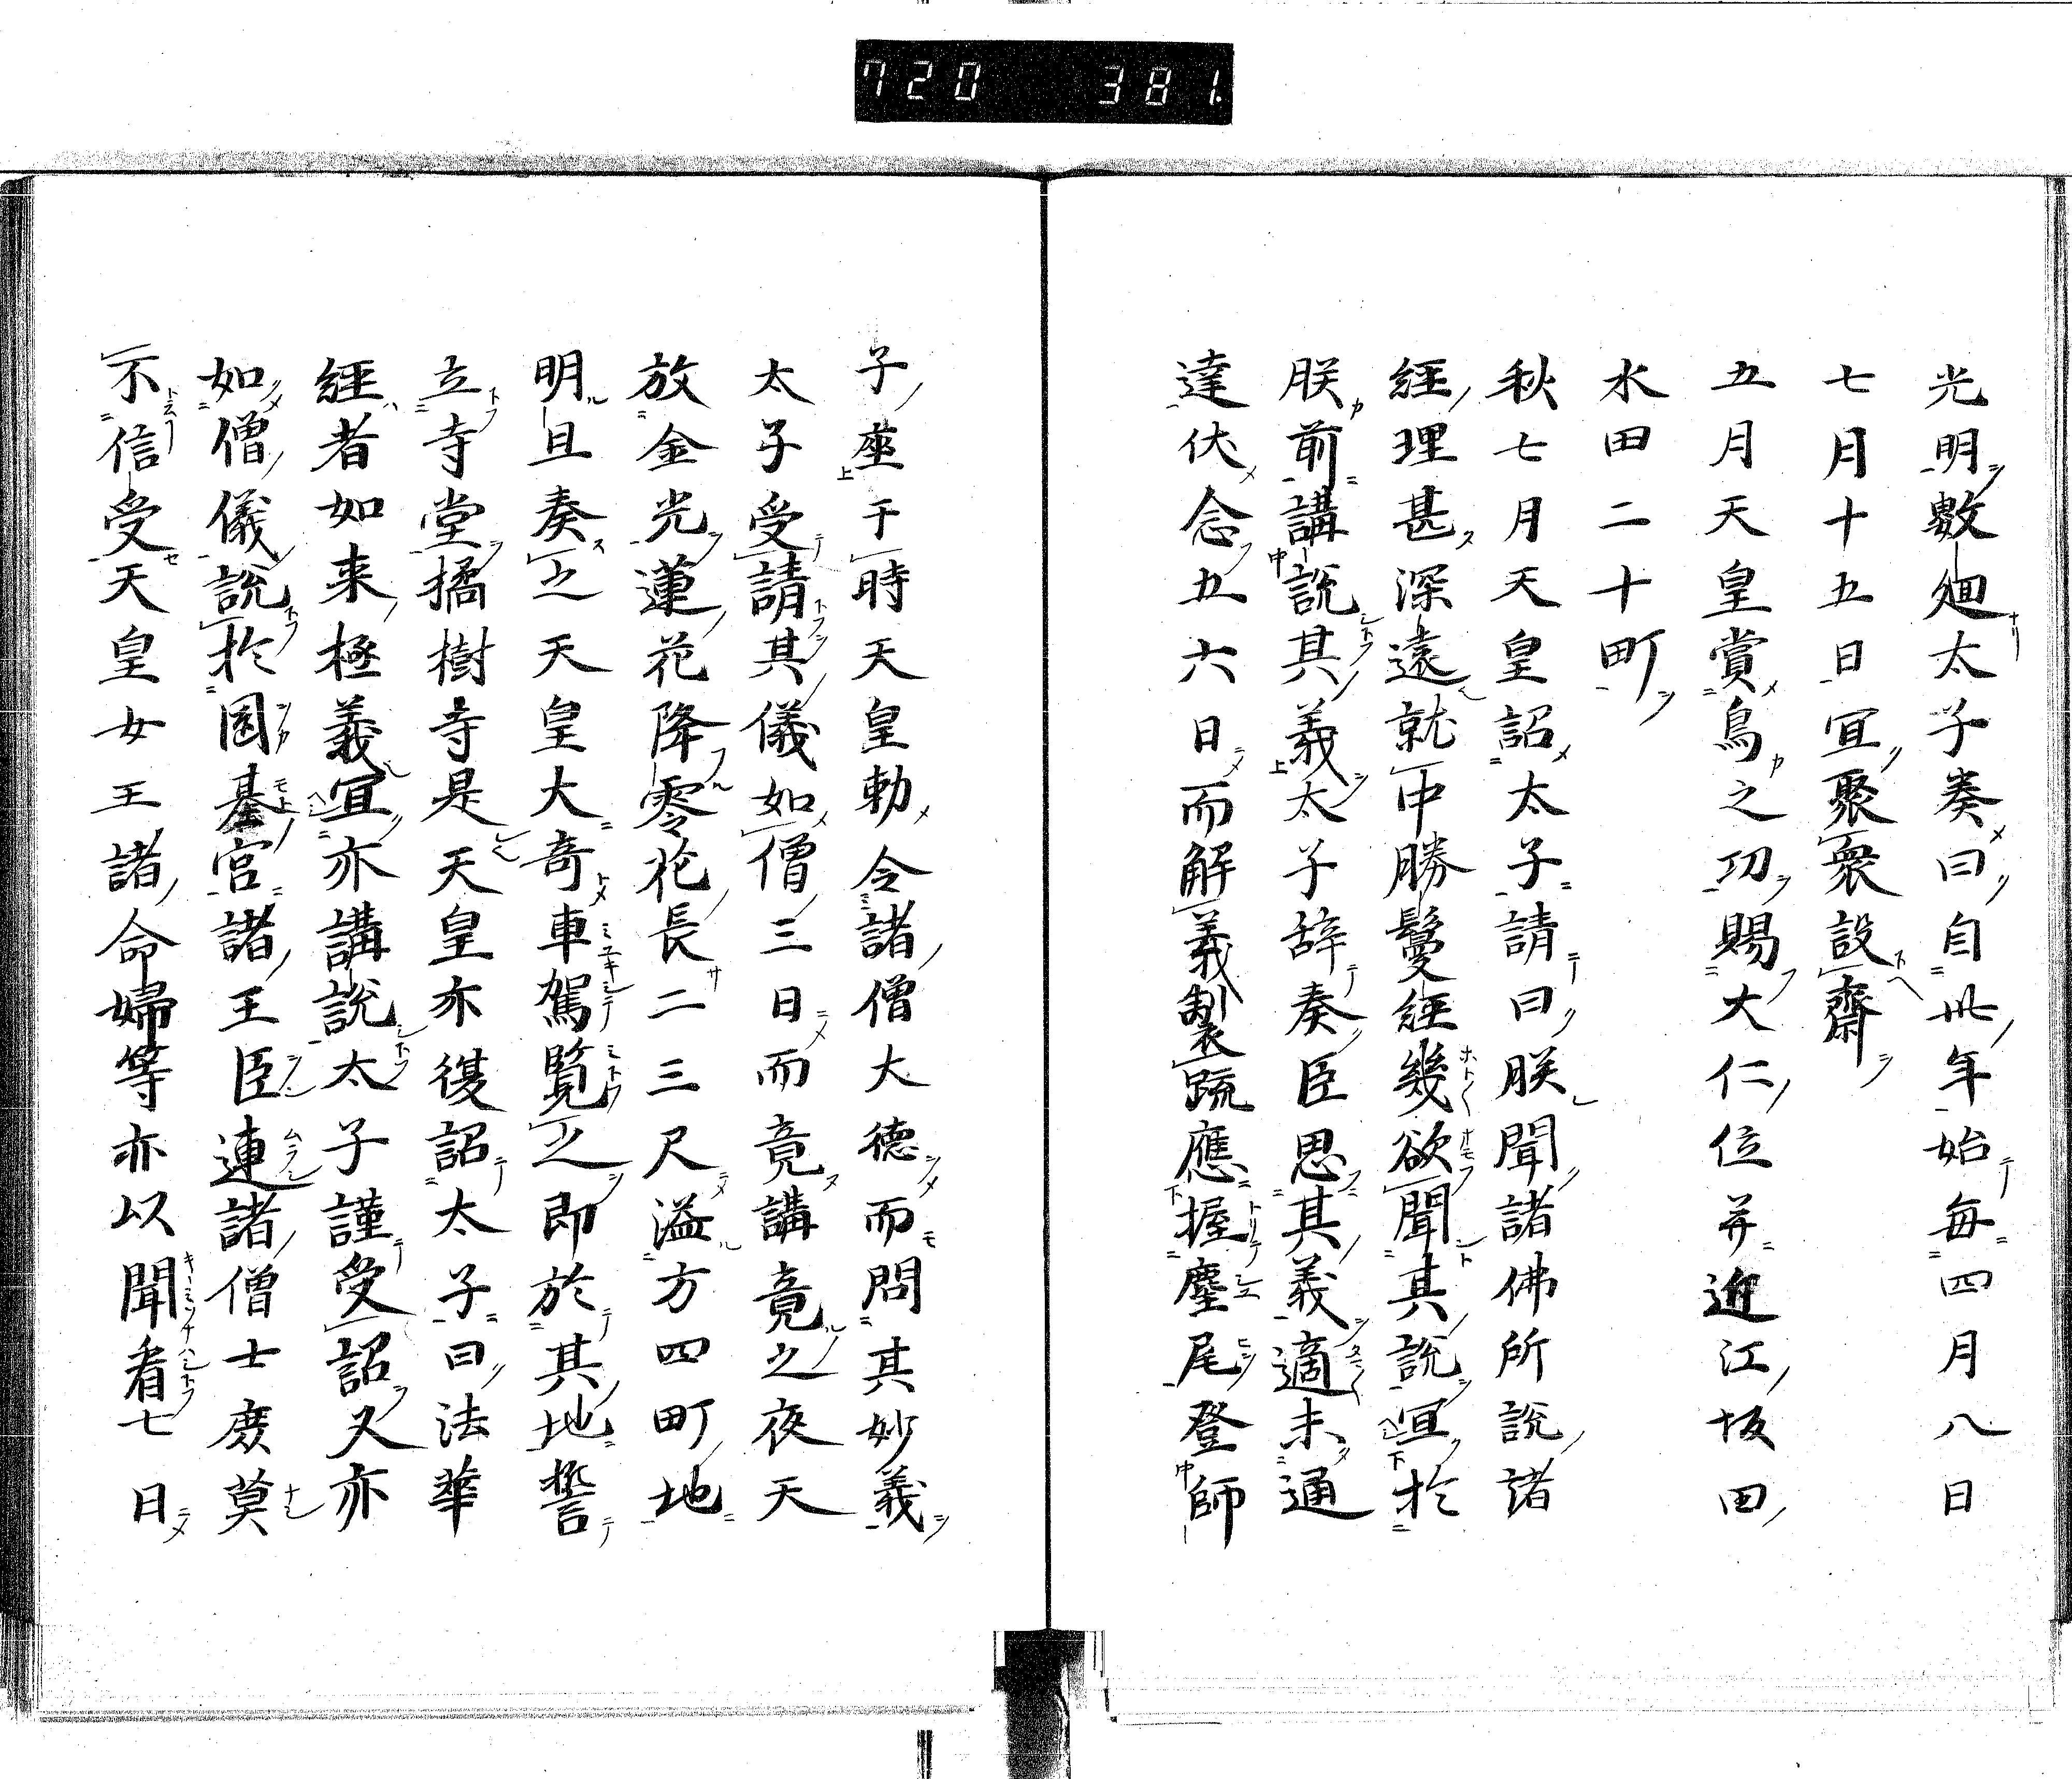 720 381.
光明數廻太子奏曰自此年始每四月八日
七月十五日宜聚衆設齋
五月天皇賞鳥之功賜大仁位并近江坂田
水田二十町
秋七月天皇詔太子請曰朕聞諸佛所說諸
經理甚深遠就中勝鬘經幾欲聞其說宜於
朕前講說其義太子辞奏臣思其義適未通
達伏念五六日而解義製䟽應握麈尾登師
子座于時天皇勅令諸僧大德而問其妙義
太子受請其儀如僧三日而竟講竟之夜天
放金光蓮花降零花長二三尺溢方四町地
明旦奏之天皇大奇車駕覧之即於其地誓
立寺堂橘樹寺是天皇亦復詔太子曰法華
經者如来極義宜亦講說太子謹受詔又亦
如僧儀說於囡基宮諸王臣連諸僧士庶莫
不信受天皇女王諸命婦等亦以聞看七日